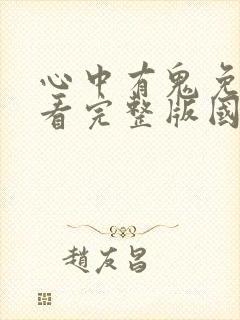 心中有鬼免
看完整版國
趙友昌